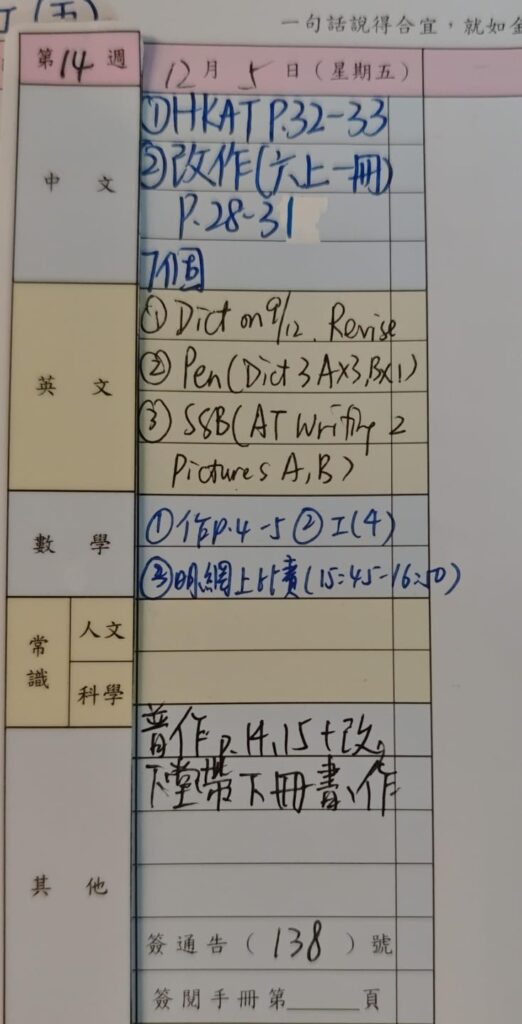 丁(五)
一句話說得合宜，就如金
第14週
12月5日（星期五）
中文
①HKAT P.32-33
②改作(六上一冊)
P.28-31
7個
英文
① Dict on 9/12. Revise
② Pen(Dict 3 A×3, B×1)
③ SSB(AT Writing 2
Pictures A, B)
數學
①作p.4-5 ②工(4)
③明網上比賽(15:45-16:50)
常識
人文
科學
其他
普作p.14,15+改
下堂帶下冊書、作
簽通告（138）號
簽閱手冊第____頁